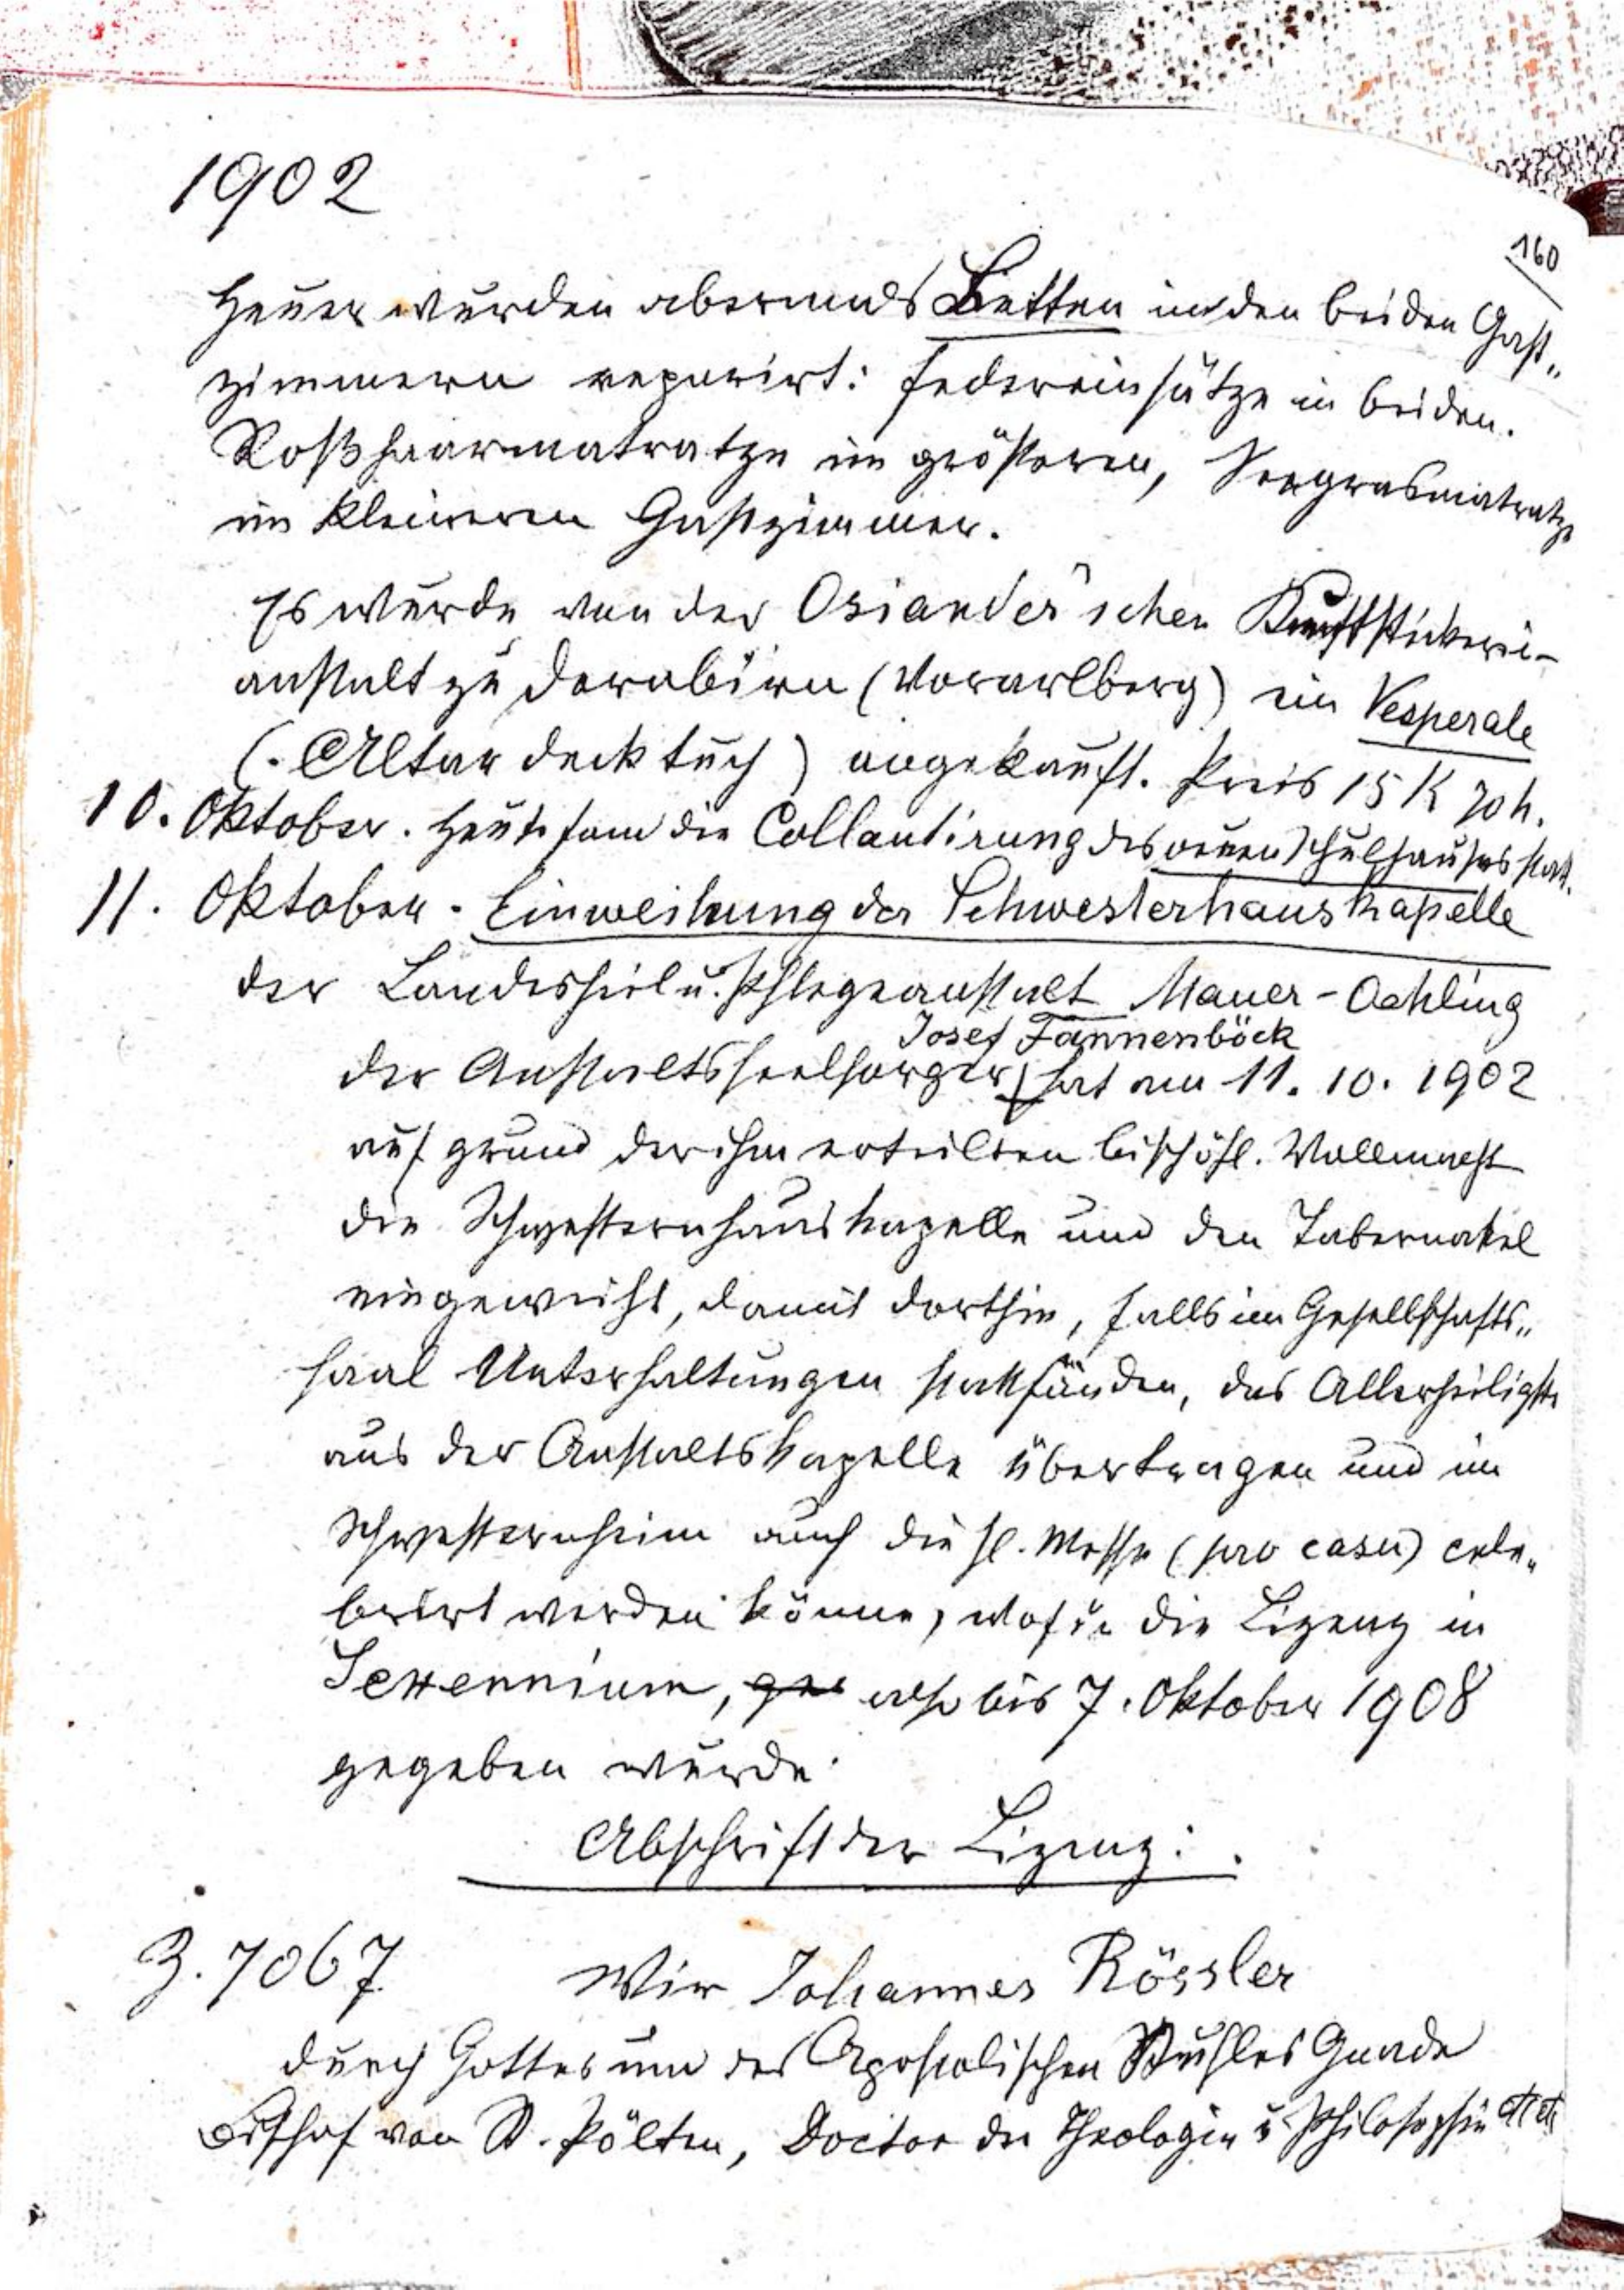 1902
160
Heuer wurden abermals Betten in den beiden Gast„
zimmern reparirt: Federeinsätze in beiden.
Roßhaarmatratze im größeren, Seegrasmatratze
im kleineren Gastzimmer.
Es wurde von der Osiander'schen Kunststickerei-
anstalt zu Dornbirn (Vorarlberg) ein Vesperale
(. Altardecktuch) angekauft. Preis 15 K 70 h.
10. Oktober. Heute fand die Collautirung des neuen Schulhauses statt.
11. Oktober. Einweihung der Schwesterhauskapelle
der Landesheil u. Pflegeanstalt Mauer-Oehling
Josef Tannenböck
der Anstaltsseelsorger hat am 11. 10. 1902
auf grund der ihm erteilten bischöfl. Vollmacht
die Schwesternhauskapelle und den Tabernakel
eingeweiht, damit dorthin, falls im Gesellschafts„
saal Unterhaltungen stattfänden, das Allerheiligste
aus der Anstaltskapelle übertragen und im
Schwesternheim auch die hl. Messe (pro casu) cele„
brirt werden könne, wofür die Lizenz in
Sexennium, also bis 7. Oktober 1908
gegeben wurde.
Abschrift der Lizenz:.
Z. 7067
Wir Johannes Rössler
durch Gottes und des Apostolischen Stuhles Gnade
Bischof von St. Pölten, Doctor der Theologie u Philosophie etc etc